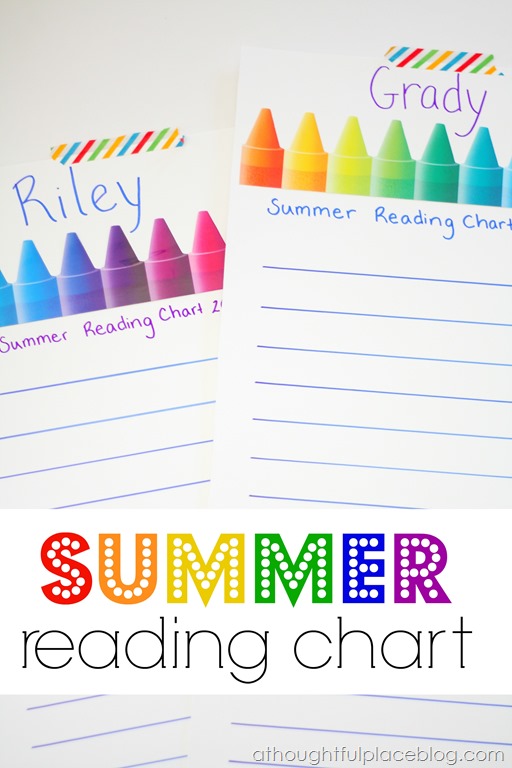 Grady
Summer Reading Chart
Riley
Summer Reading Chart
SUMMER
reading chart
athoughtfulplaceblog.com